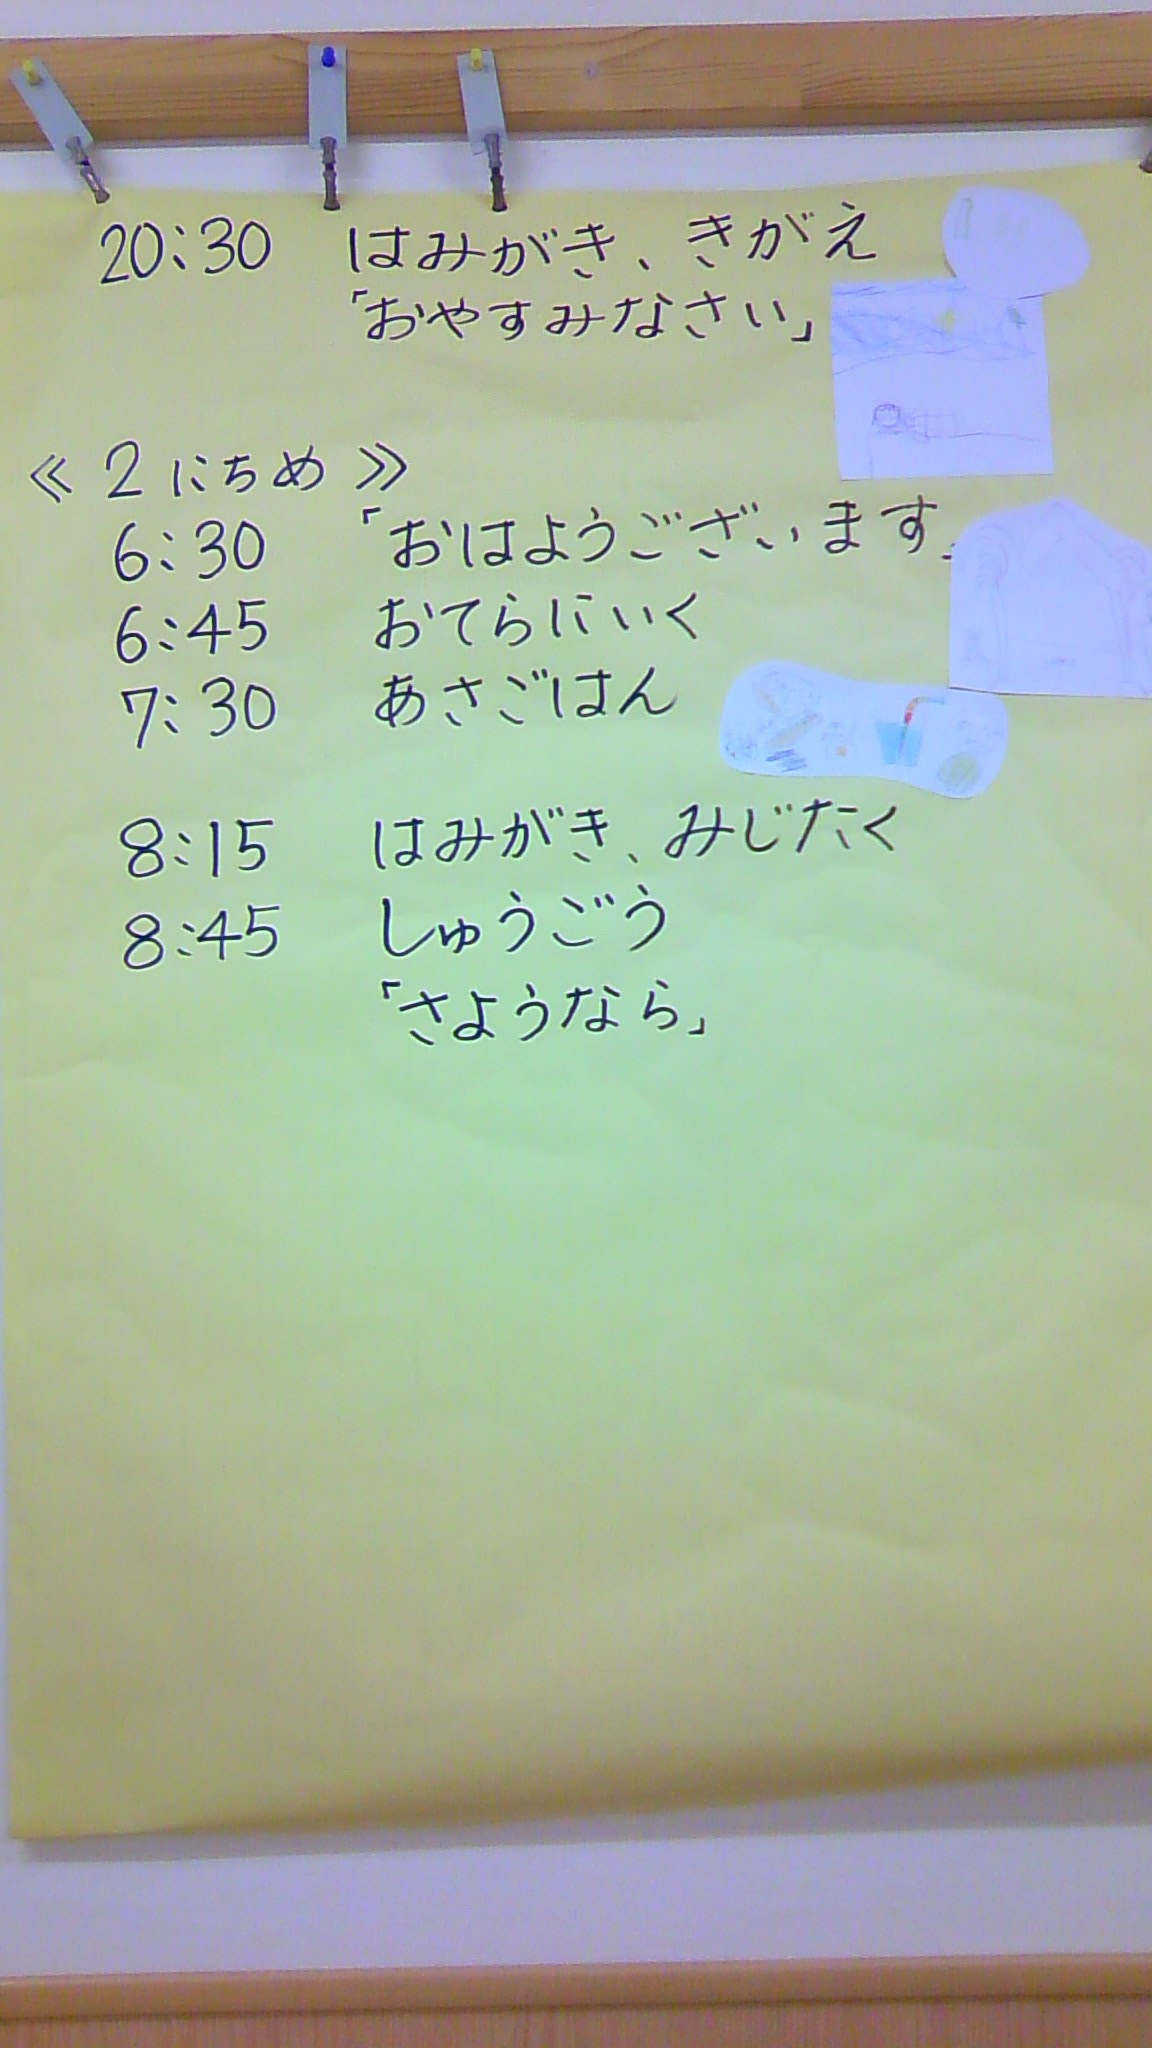 20:30 はみがき、きがえ
「おやすみなさい」
≪ 2にちめ ≫
6:30 「おはようございます」
6:45 おてらにいく
7:30 あさごはん
8:15 はみがき、みじたく
8:45 しゅうごう
「さようなら」